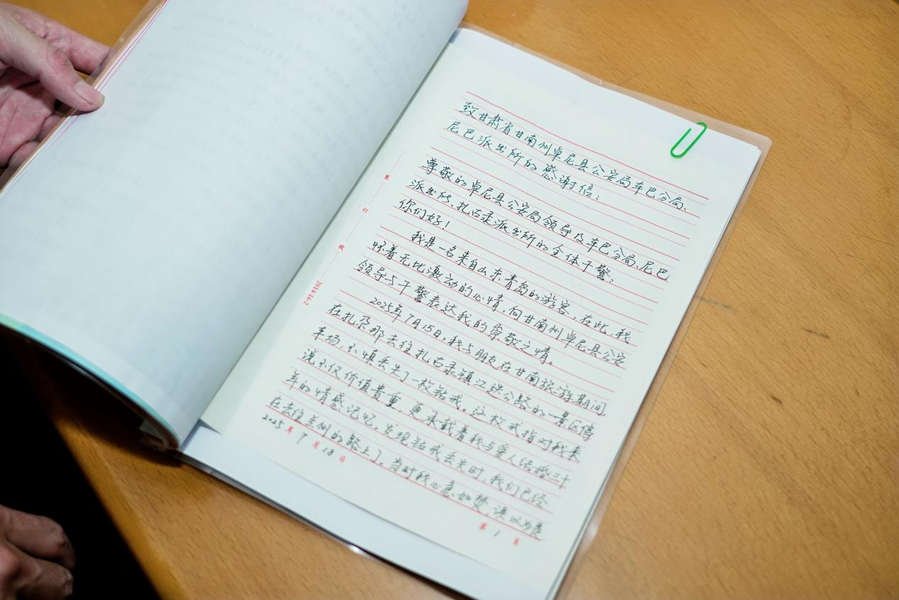 致甘肃省甘南州卓尼县公安局车巴分局、
尼巴派出所的感谢信：
尊敬的卓尼县公安局领导及车巴分局、尼巴
派出所、扎古录派出所的全体干警：
你们好！
我是一名来自山东青岛的游客，在此，我
怀着无比激动的心情，向甘南州卓尼县公安
领导与干警表达我的崇敬之情。
2025年7月15日，我与朋友在甘南旅游期间，
在扎尕那去往扎古录镇江迭公路的一景区停
车场，不慎丢失了一枚钻戒，这枚戒指对我来
说不仅价值贵重，更承载着我与爱人结婚三十
年的情感记忆，发现钻戒丢失时，我们已经
在去往兰州的路上了，当时我心急如焚，误以为是
2025年7月18日
第1页
装
订
线